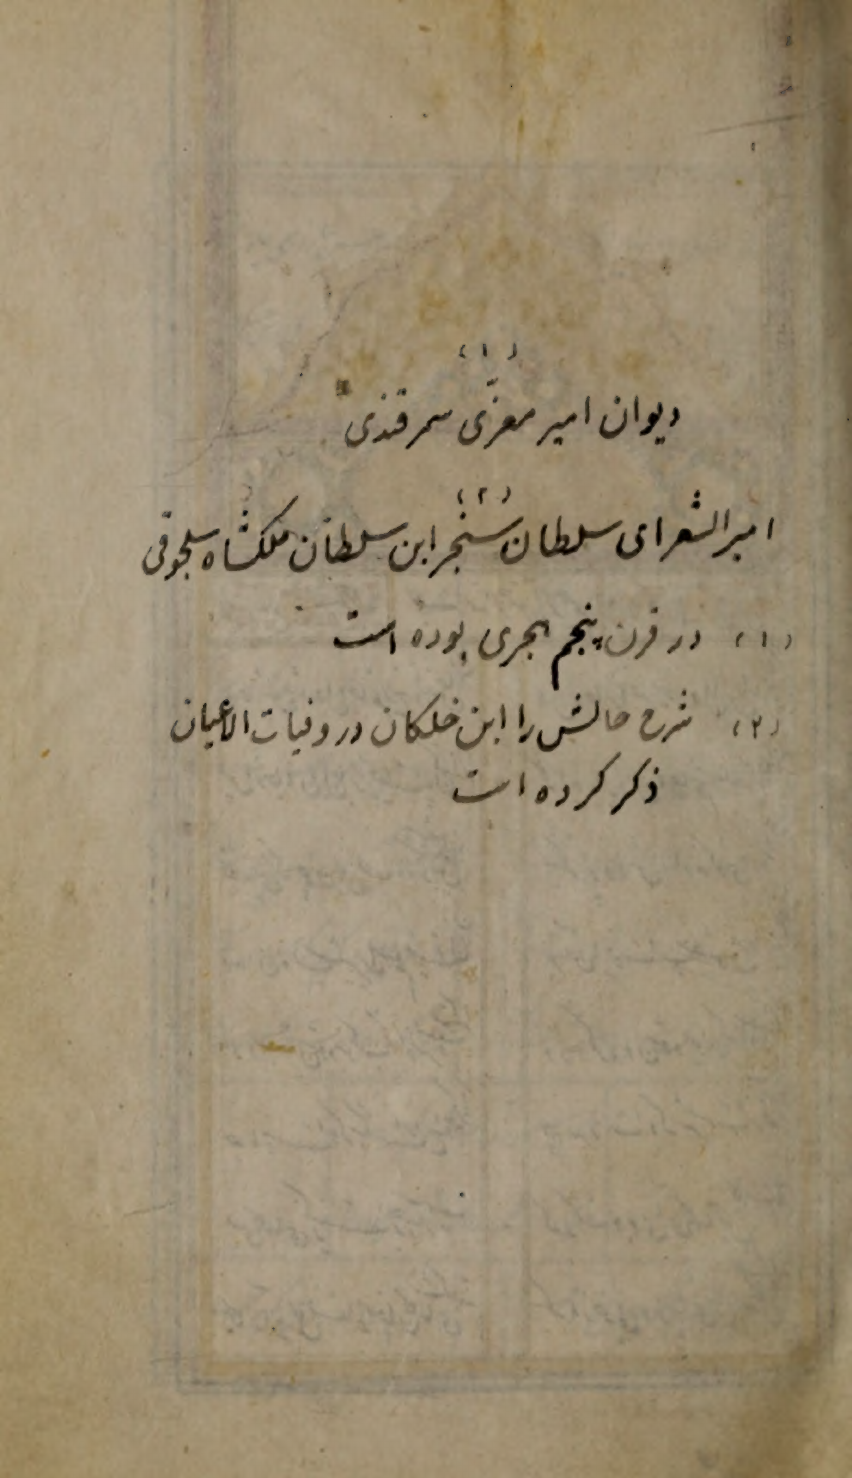 (۱)
دیوان امیر معزّی سمرقندی
(۲)
امیرالشعرای سلطان سنجر ابن سلطان ملکشاه سلجوقی
(۱) در قرن پنجم هجری بوده است
(۲) شرح حالش را ابن خلکان در وفیات الاعیان
ذکر کرده است